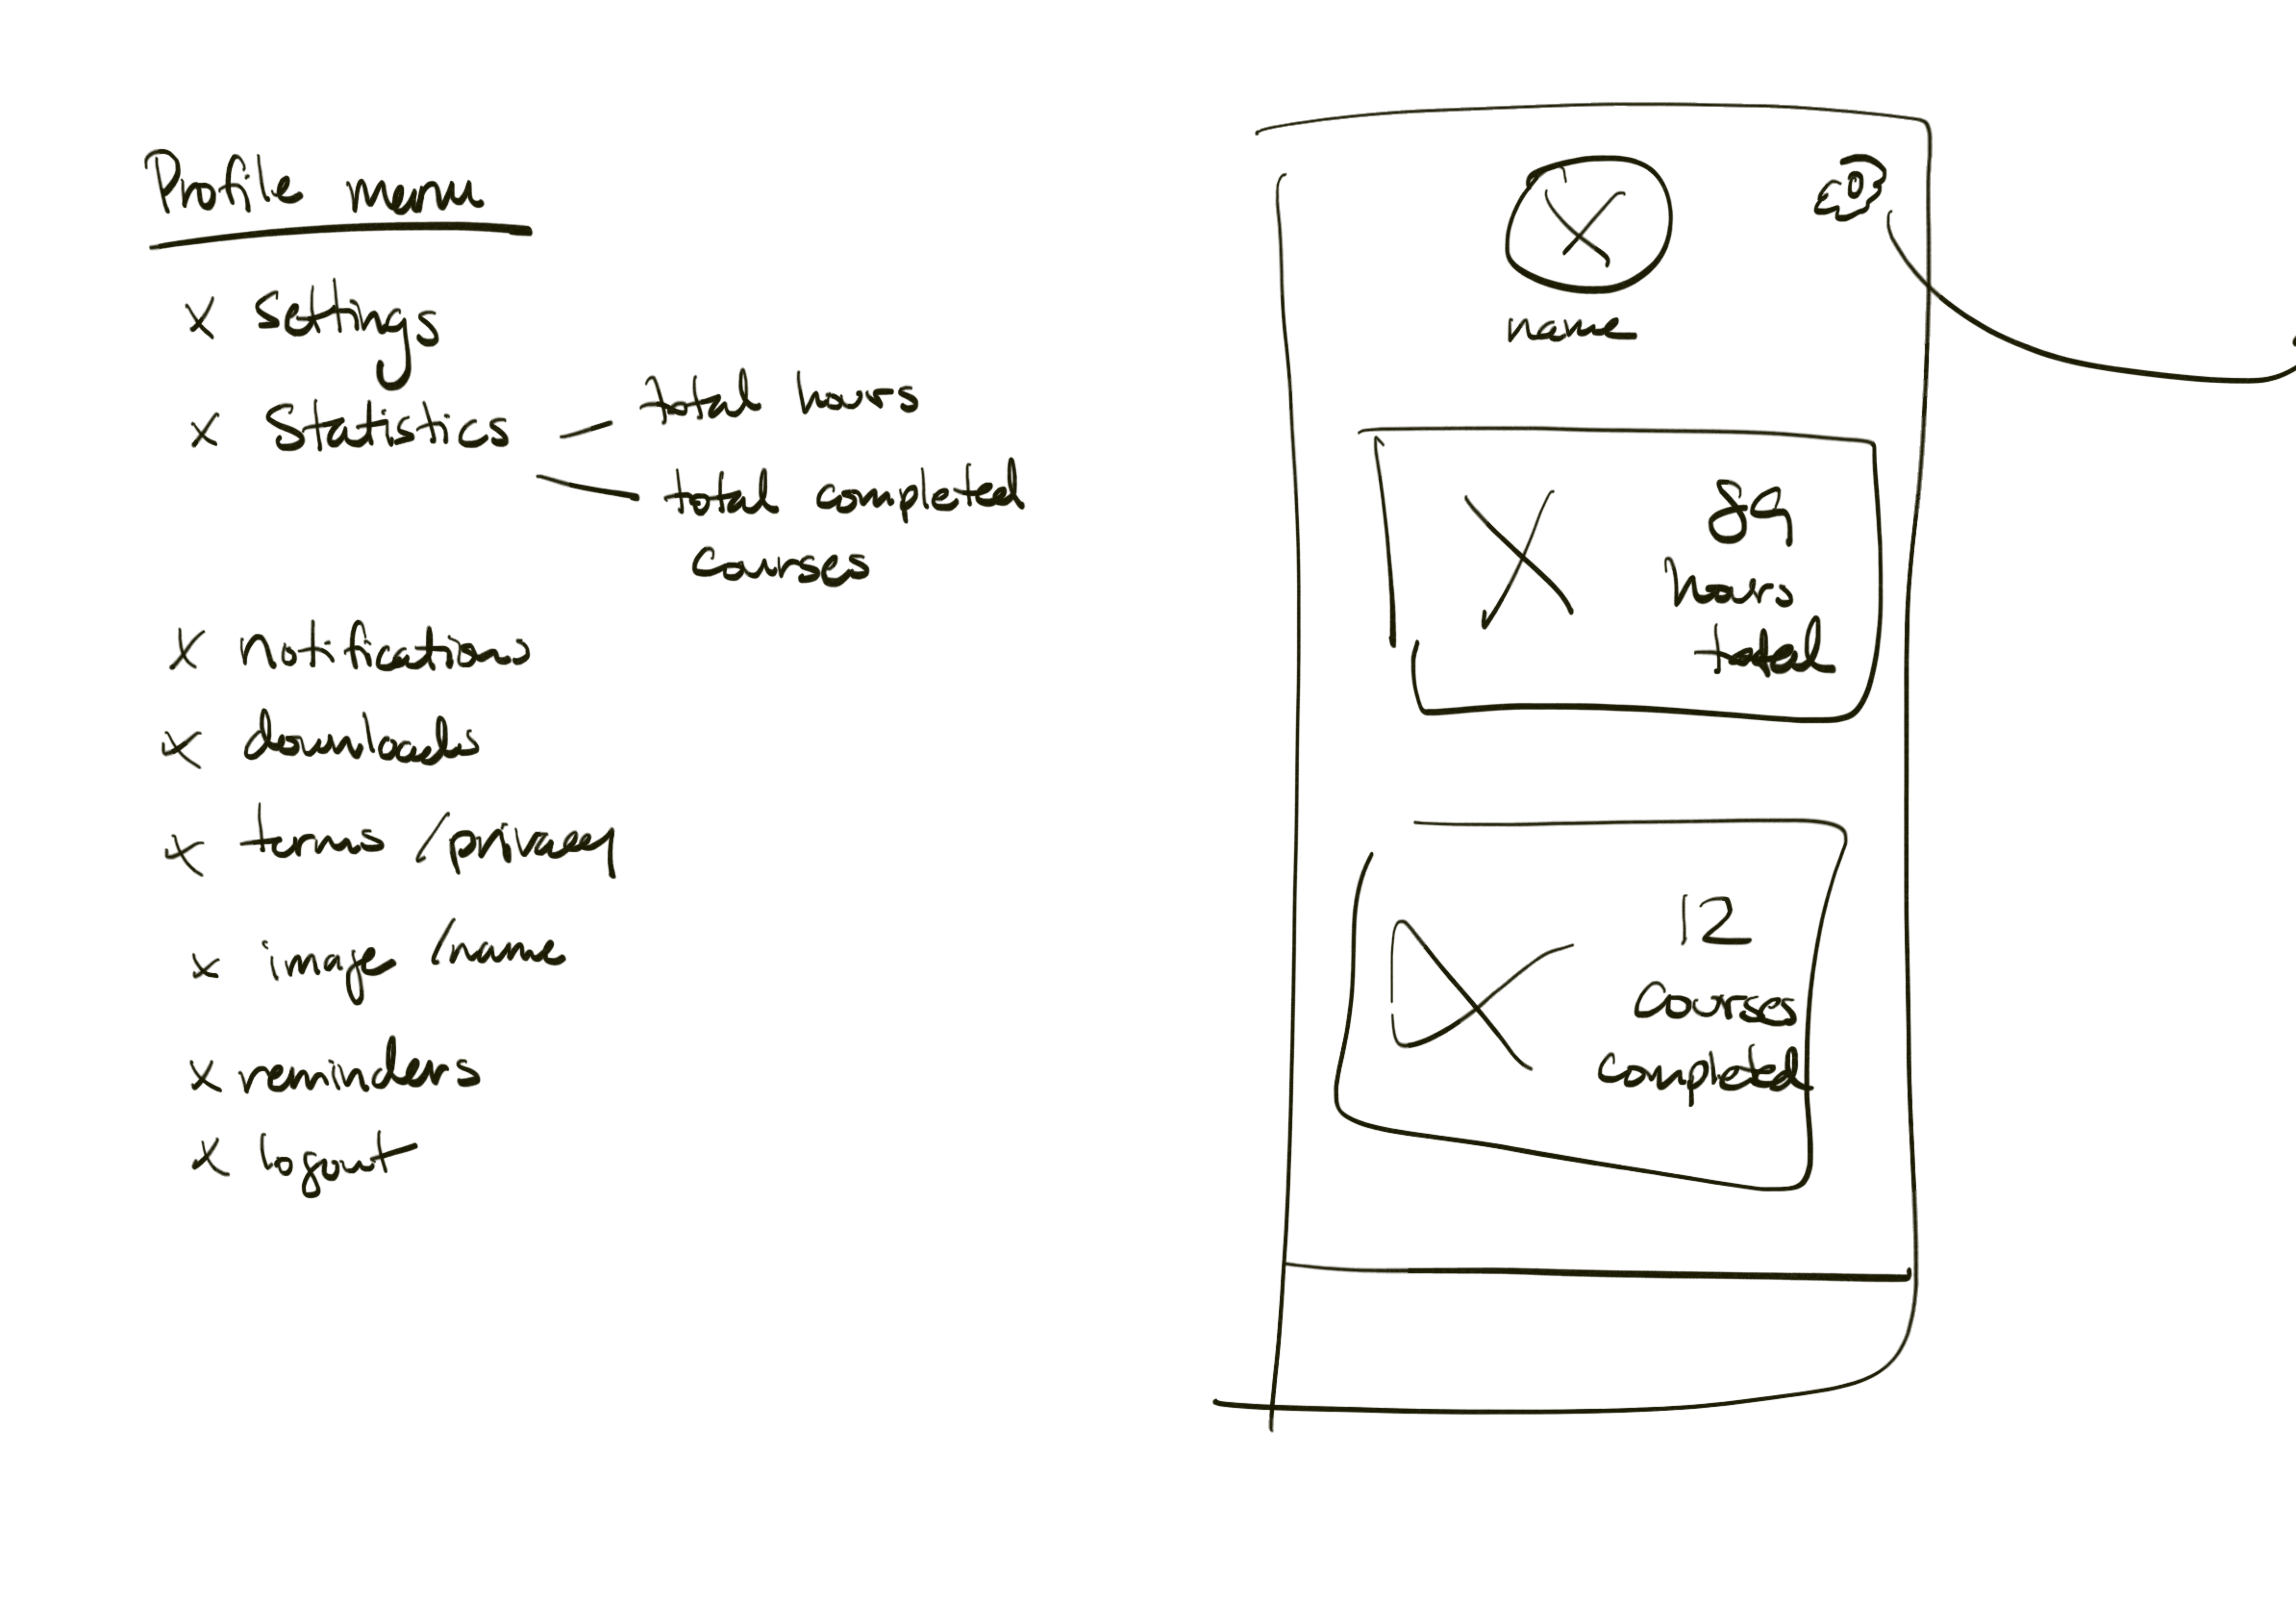 Profile menu
x settings
x Statistics
total hours
total completed
courses
x notifications
x downloads
x terms / privacy
x image / name
x reminders
x logout
name
89
hours
total
12
courses
completed